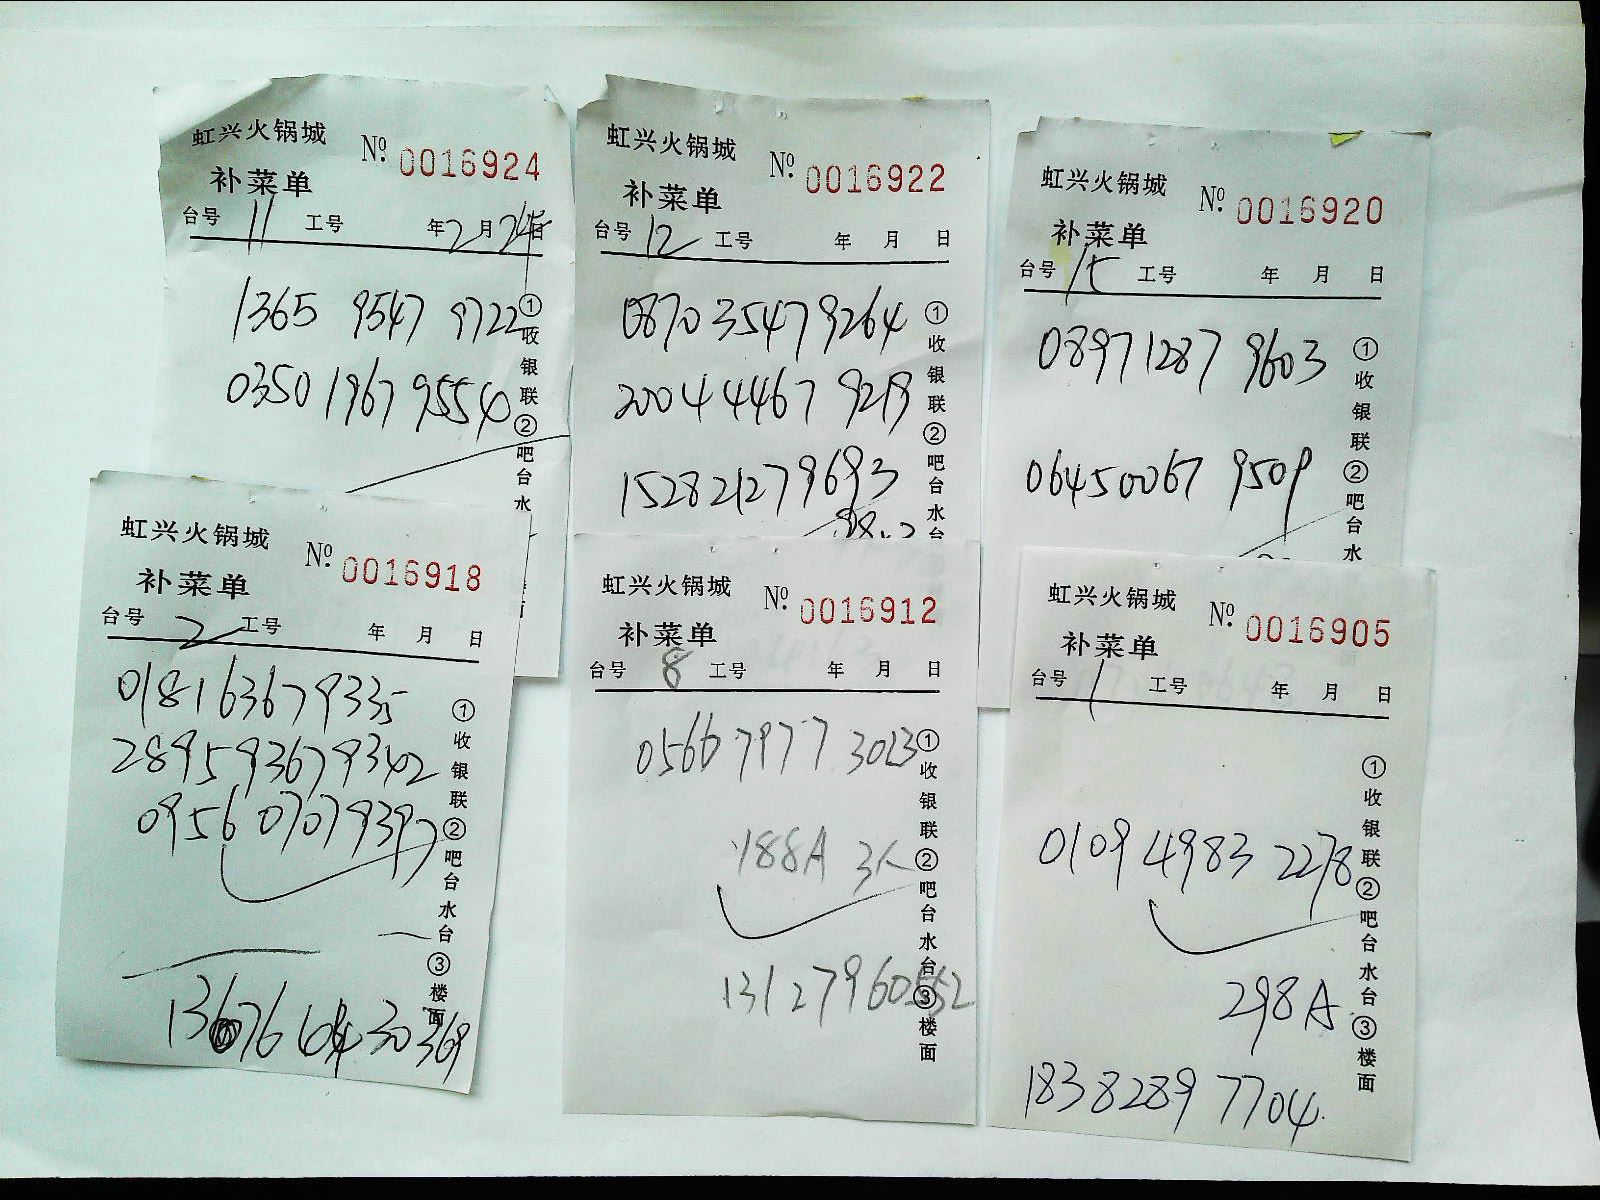 虹兴火锅城 № 0016924
补菜单
台号 11 工号 年 2 月 24 日
1365 9547 9722
0350 1967 9554
①收银联②吧台水
虹兴火锅城 № 0016922
补菜单
台号 12 工号 年 月 日
0870 3547 9264
2004 4467 9219
1528 2127 9693
①收银联②吧台水台
虹兴火锅城 № 0016920
补菜单
台号 15 工号 年 月 日
0897 1287 9603
0645 0067 9509
①收银联②吧台水
虹兴火锅城 № 0016918
补菜单
台号 2 工号 年 月 日
0181 6367 9335
2895 9367 9342
0956 0707 9397
①收银联②吧台水台③楼面
虹兴火锅城 № 0016912
补菜单
台号 8 工号 年 月 日
0566 7977 3023
188A 3人
13127960552
①收银联②吧台水台③楼面
虹兴火锅城 № 0016905
补菜单
台号 1 工号 年 月 日
0109 4983 2278
298A
1838289 7704
①收银联②吧台水台③楼面